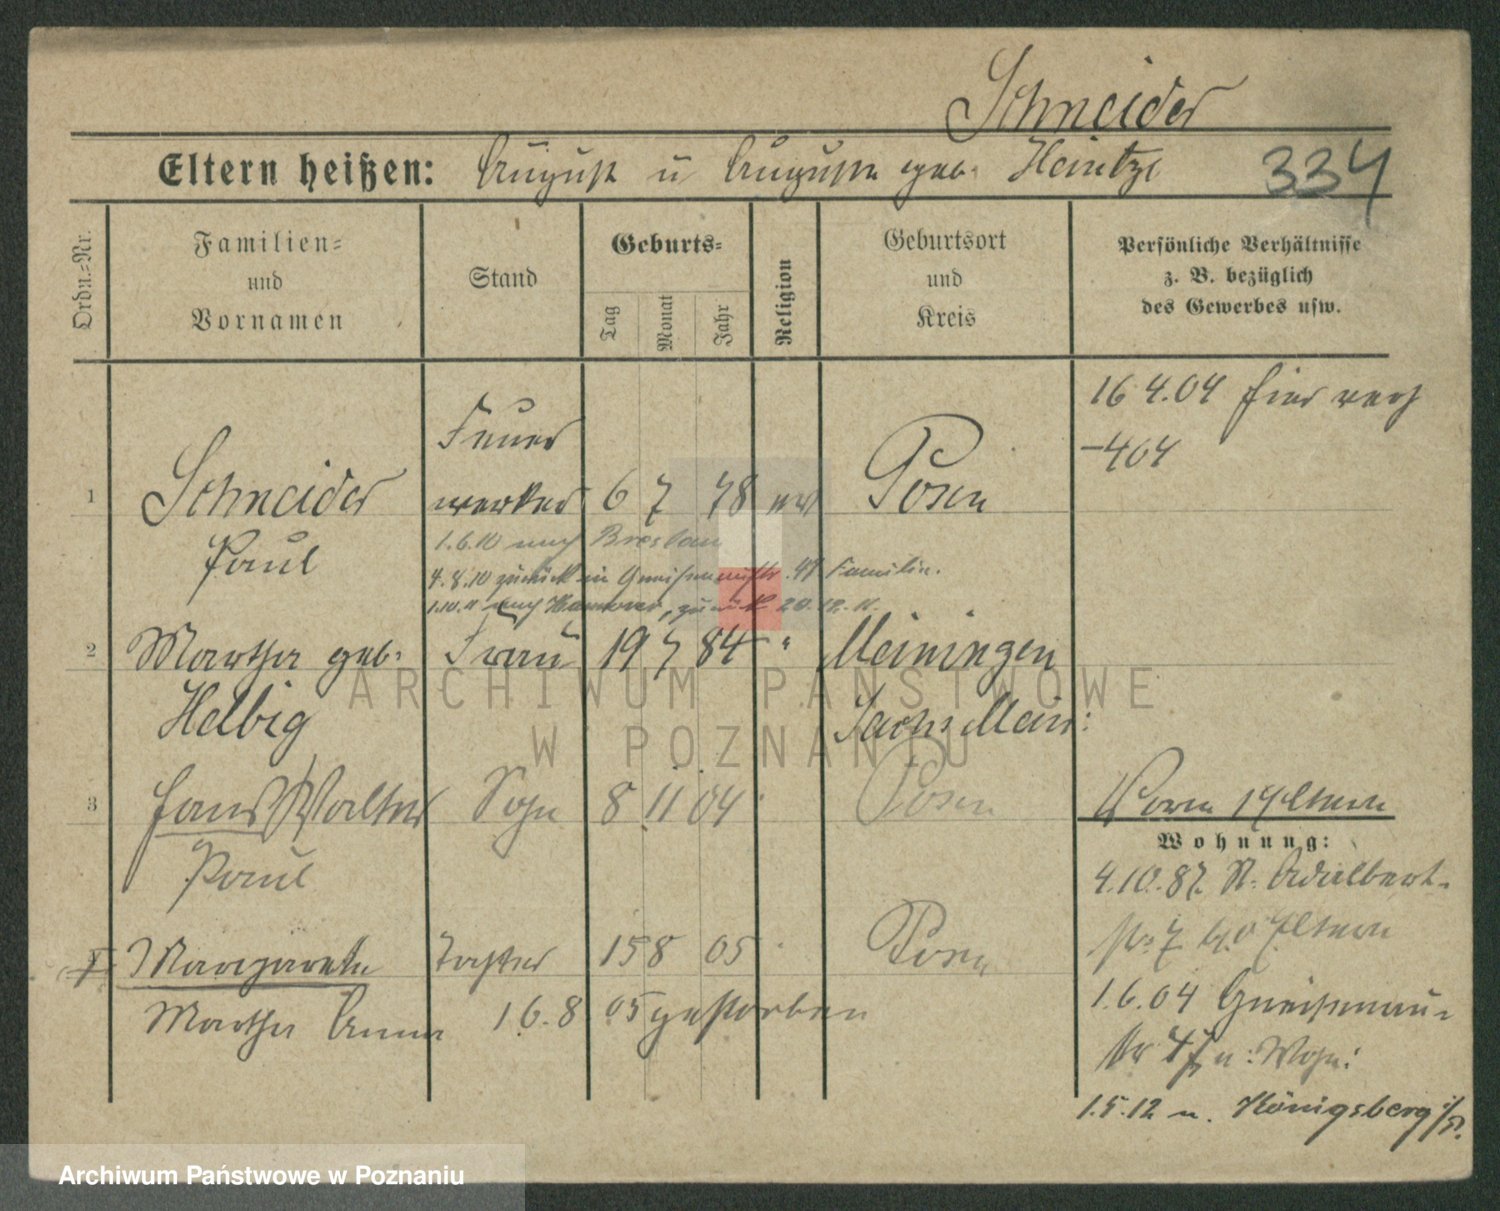 Schneider
Eltern heißen: August u Auguste geb. Heintze
334
Ordn.=Nr.
Familien=
und
Vornamen
Stand
Geburts=
Tag
Monat
Jahr
Religion
Geburtsort
und
Kreis
Persönliche Verhältnisse
z. B. bezüglich
des Gewerbes usw.
16 4.04 hier
-404
1
Schneider
Paul
Feuer
werker
6 7 78
Posen
1.6.10 nach Breslau
4.8.10 zurück in Gneisenaustr. Familie.
1.10.11 nach Hannover, zurück 20.12.11.
2
Martha geb.
Helbig
Frau
19 7 84 "
Meiningen
Sachs Mein:
3
Hans Walter
Paul
Sohn
8 11 04
Posen
Eltern
Wohnung:
4.10.87. St. Adalbert-
str 7 Eltern
Margarete
Martha Anna
Tochter
15 8 05
Posen
16.8 05 gestorben
1.6.04 Gneisenau-
str n: Wohn:
1.5.12 n. Königsberg i/P.
ARCHIWUM PAŃSTWOWE
W POZNANIU
Archiwum Państwowe w Poznaniu